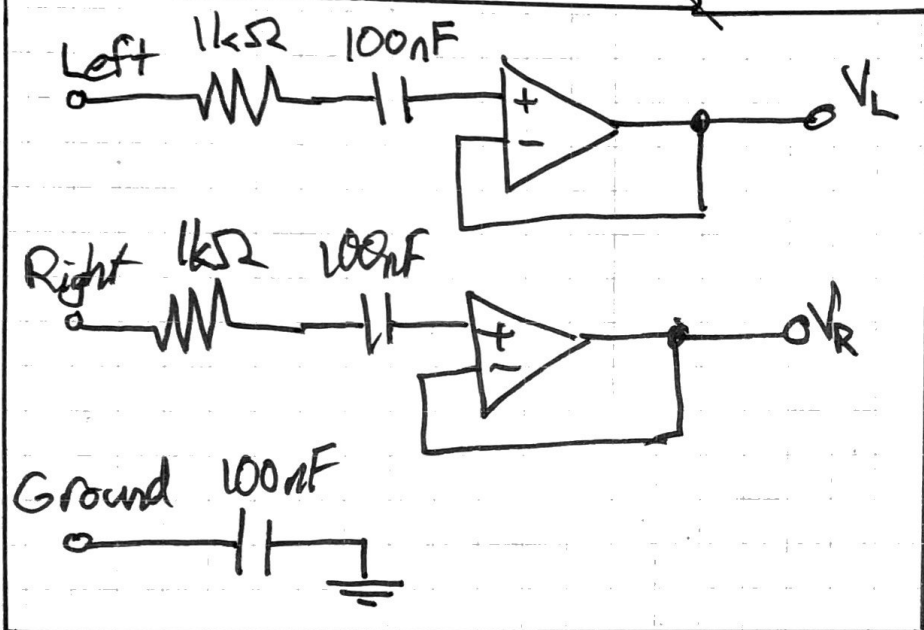 Left 1kΩ 100nF
+
-
V_L
Right 1kΩ 100nF
+
-
V_R
Ground 100nF